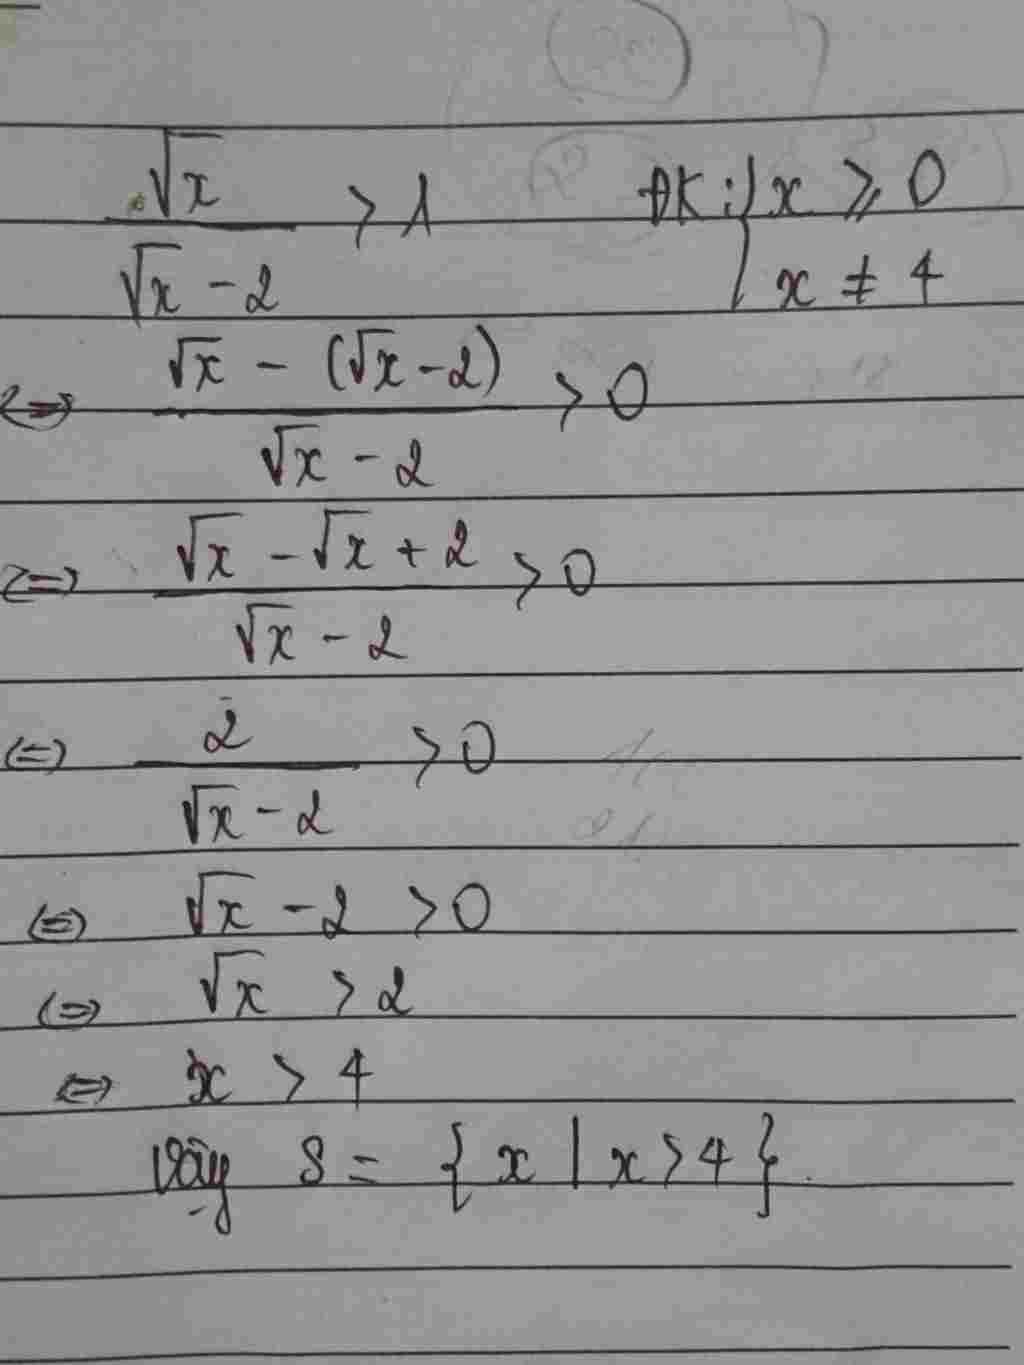 √x / (√x - 2) > 1    ĐK: { x ≥ 0
x ≠ 4
<=> (√x - (√x - 2)) / (√x - 2) > 0
<=> (√x - √x + 2) / (√x - 2) > 0
<=> 2 / (√x - 2) > 0
<=> √x - 2 > 0
<=> √x > 2
<=> x > 4
Vậy S = { x | x > 4 }.